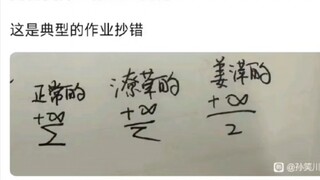 这是典型的作业抄错
正常的 潦草的 姜萍的
+∞ +∞ +∞
Σ Σ 2
@孙笑川